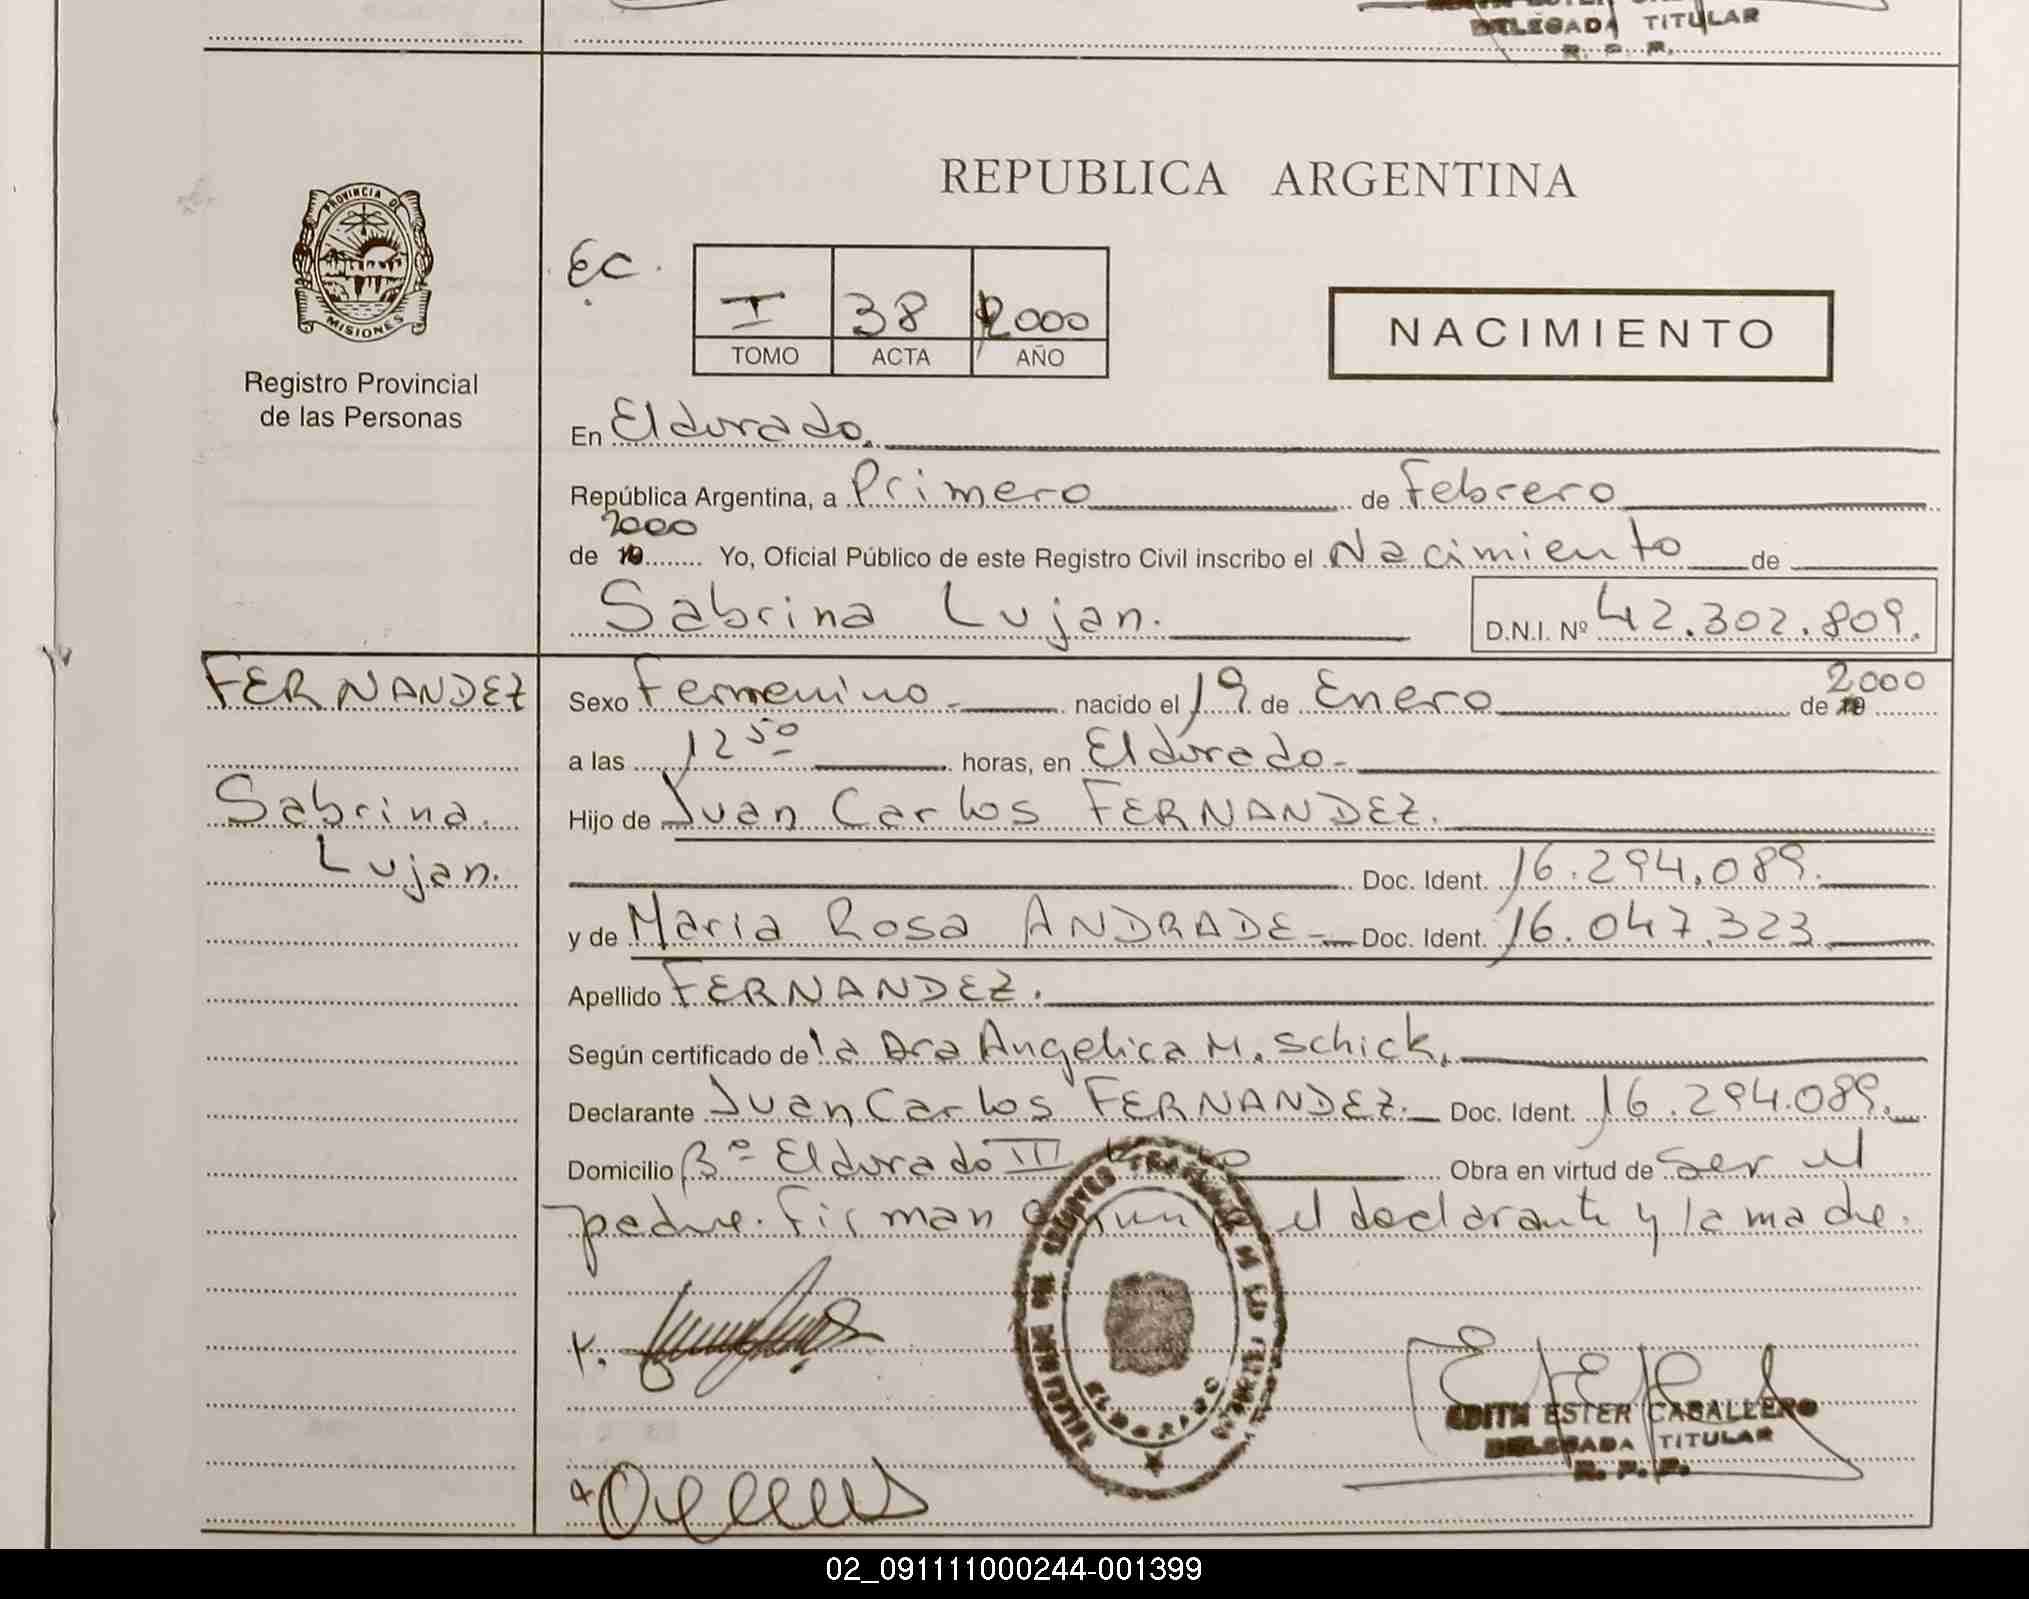 DELEGADA TITULAR
R. P. P.
REPUBLICA ARGENTINA
PROVINCIA DE
MISIONES
Registro Provincial
de las Personas
EC.
I 38 2000
TOMO ACTA AÑO
NACIMIENTO
En Eldorado.
República Argentina, a Primero de Febrero
2000
de 19 Yo, Oficial Público de este Registro Civil inscribo el Nacimiento de
Sabrina Lujan. D.N.I. Nº 42.302.809.
FERNANDEZ
Sabrina
Lujan.
Sexo Femenino - nacido el 19 de Enero de 19 2000
a las 12 50 horas, en Eldorado -
Hijo de Juan Carlos FERNANDEZ.
Doc. Ident. 16.294.089.
y de Maria Rosa ANDRADE - Doc. Ident. 16.047.323
Apellido FERNANDEZ.
Según certificado de la Dra Angelica M. Schick.
Declarante Juan Carlos FERNANDEZ. Doc. Ident. 16.294.089.
Domicilio Bº Eldorado III Obra en virtud de Ser el
padre. Firman el declarante y la madre.
ELDORADO
EDITH ESTER CABALLERO
DELEGADA TITULAR
R. P. P.
02_091111000244-001399